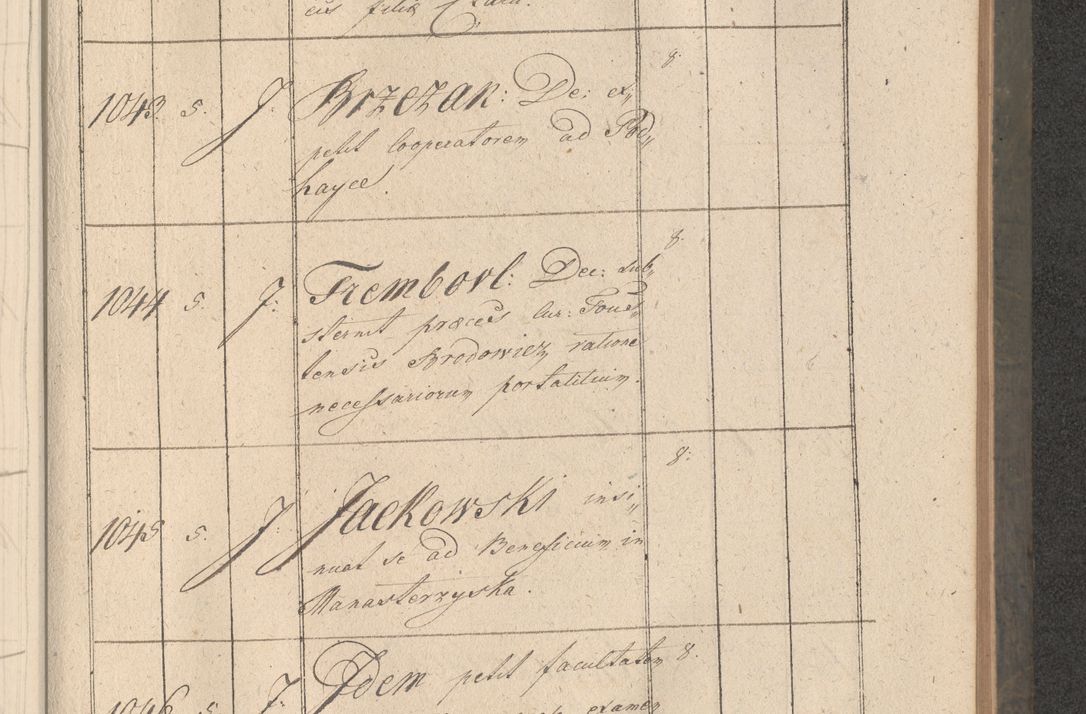 cus filiæ
8.
1043 5. J. Brzezan: De: ex„
petit Cooperatorem ad Pod„
hayce.
8.
1044 5. J: Trembovl: Dec: sub„
sternit preces Cur: Tous„
tensis Brodowicz ratione
necessariorum portatilium.
8:
1045 5. J: Jackowski insi„
nuat se ad Beneficium in
Manasterzyska.
1046 5. J. Idem petit facultatem 8.
examen